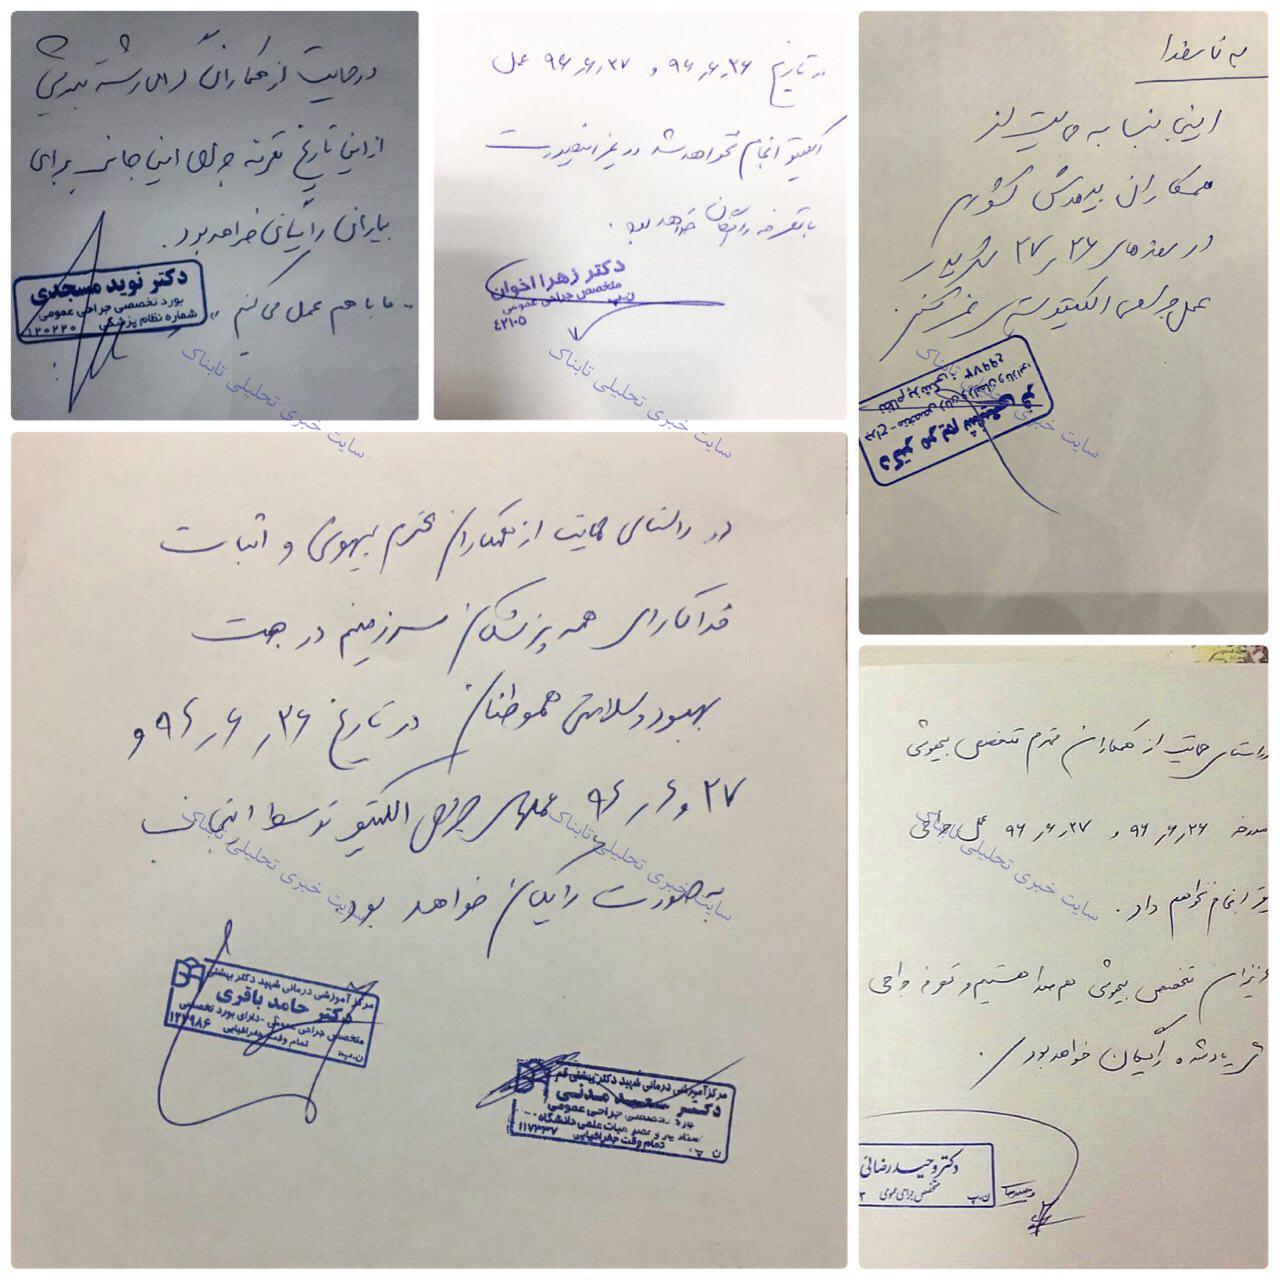 در حمایت از همکاران
از این تاریخ تعرفه جراحی اینجانب برای
بیماران رایگان خواهد بود.
ما با هم عمل می کنیم
دکتر نوید مسجدی
بورد تخصصی جراحی عمومی
شماره نظام پزشکی ۱۲۰۲۲۰
سایت خبری تحلیلی تابناک
در تاریخ ۹۶٫۶٫۲۶ و ۹۶٫۶٫۲۷ عمل
الکتیو انجام نخواهد شد در غیر اینصورت
با تعرفه رایگان خواهد بود.
دکتر زهرا اخوان
متخصص جراحی عمومی
ن.پ
۴۲۱۰۵
سایت خبری تحلیلی تابناک
به نام خدا
اینجانب به حمایت از
همکاران بیهوشی کشورم
در روزهای ۲۶ و ۲۷ شهریور
عمل جراحی الکتیو
دکتر مریم
سایت خبری تحلیلی تابناک
در راستای حمایت از همکاران محترم بیهوشی و اثبات
فداکاری همه پزشکان سرزمینم در جهت
بهبود و سلامتی هموطنان در تاریخ ۹۶٫۶٫۲۶ و
۹۶٫۶٫۲۷ عملهای جراحی الکتیو توسط اینجانب
بصورت رایگان خواهد بود
سایت خبری تحلیلی تابناک
سایت خبری تحلیلی تابناک
مرکز آموزشی درمانی شهید دکتر بهشتی
دکتر حامد باقری
متخصص جراحی عمومی - دارای بورد تخصصی
تمام وقت جغرافیایی
ن.پ ۱۲۲۹۸۶
مرکز آموزشی درمانی شهید دکتر بهشتی قم
دکتر سعید مدنی
بورد تخصصی جراحی عمومی
استادیار و عضو هیات علمی دانشگاه
تمام وقت جغرافیایی
ن پ. ۱۱۷۳۳۷
راستای حمایت از همکاران محترم متخصص بیهوشی
مورخه ۹۶٫۶٫۲۶ و ۹۶٫۶٫۲۷ عمل جراحی
انجام نخواهم داد.
عزیزان تخصص بیهوشی هم صدا هستیم و تعرفه جراحی
یاد شده رایگان خواهد بود.
سایت خبری تحلیلی تابناک
دکتر وحید رضائی
متخصص جراحی عمومی
ن.پ